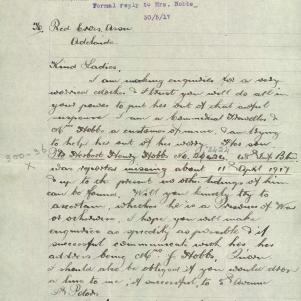 Formal reply to Mrs. Hobbs.
30/5/17
To Red Cross Assn
Adelaide
Kind Ladies,
I am making enquiries for a very
worried mother & I trust you will do all in
your power to put her out of that awful
suspense. I am a Commercial Traveller &
Mrs Hobbs a customer of mine, I am trying
to help her out of her worry. The son
2424
Pte Herbert Henry Hobbs No. 48th Inft Btn
was reported missing about 11th April 1917
& up to the present no other tidings of him
can be found. Will you kindly try to
ascertain, whether he is a Prisoner of War
or otherwise, I hope you will make
enquiries as speedily as possible & if
successful communicate with her, her
address being Mrs J. Hobbs,
I should also be obliged if you would drop
a line to me, if successful, to 5th Avenue
St Peters